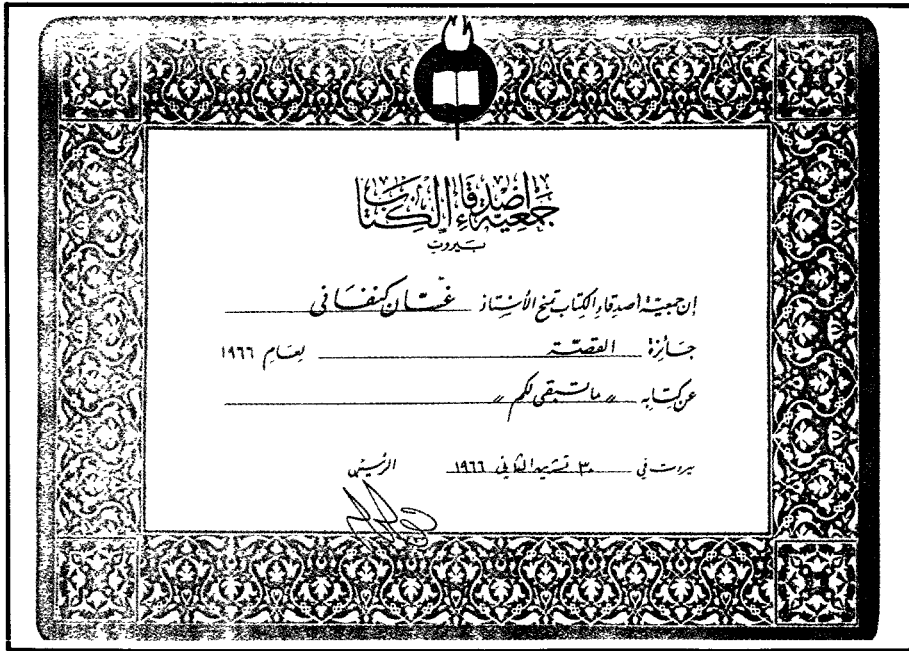 جمعية أصدقاء الكتاب
بيروت
إن جمعية أصدقاء الكتاب تمنح الأستاذ غسّان كنفاني
جائزة القصّة لعام ١٩٦٦
عن كتابه « ما تبقى لكم »
بيروت في ٣٠ تشرين الثاني ١٩٦٦ الرئيس